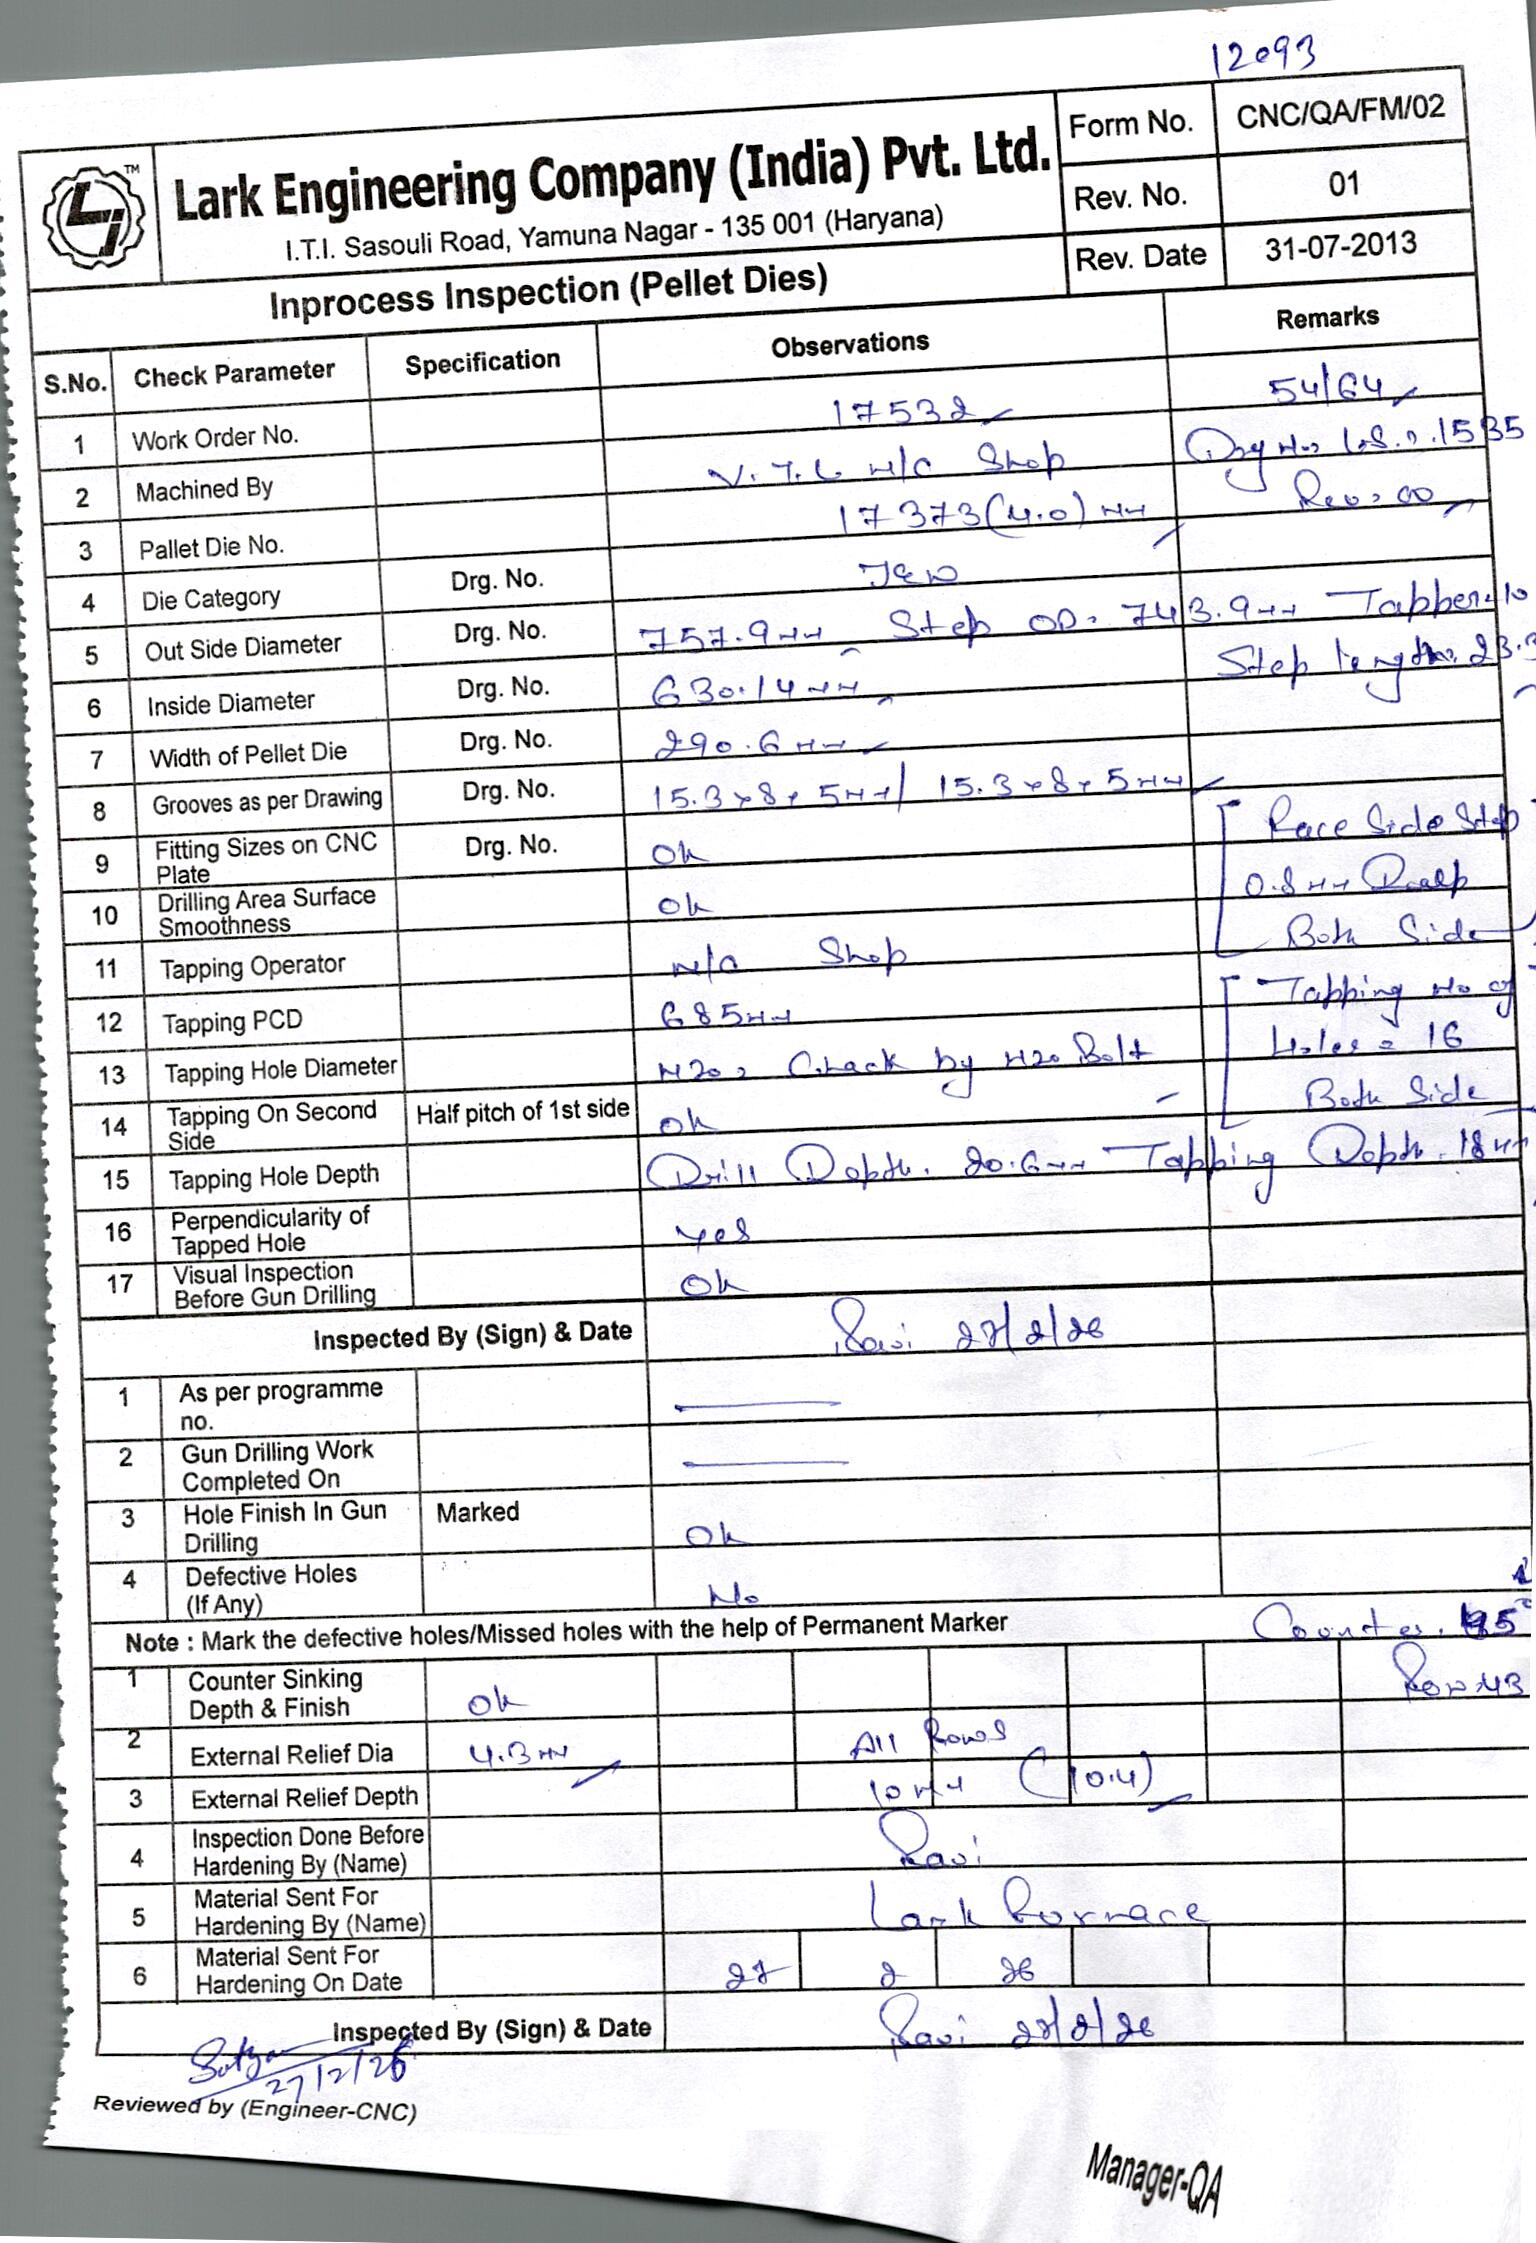 12093
TM
Lark Engineering Company (India) Pvt. Ltd.
I.T.I. Sasouli Road, Yamuna Nagar - 135 001 (Haryana)
Inprocess Inspection (Pellet Dies)
Form No. CNC/QA/FM/02
Rev. No. 01
Rev. Date 31-07-2013
S.No. Check Parameter Specification Observations Remarks
1 Work Order No. 17532 54/64
2 Machined By V.T.L M/C Shop Drg No. 1535
3 Pallet Die No. 17373(4.0) mm Rev. 00
4 Die Category Drg. No.
5 Out Side Diameter Drg. No. 757.9mm Step OD. 743.9mm Tapper 10
6 Inside Diameter Drg. No. 630.14mm Step length. 23.3
7 Width of Pellet Die Drg. No. 290.6mm
8 Grooves as per Drawing Drg. No. 15.3x8x5mm/ 15.3x8x5mm
9 Fitting Sizes on CNC Plate Drg. No. Ok Race Side Step
10 Drilling Area Surface Smoothness Ok 0.8mm Both Side
11 Tapping Operator M/C Shop
12 Tapping PCD 685mm Tapping No of
13 Tapping Hole Diameter M20, Check by M20 Bolt Holes = 16
14 Tapping On Second Side Half pitch of 1st side Ok Both Side
15 Tapping Hole Depth Drill Depth. 20.6mm Tapping Depth. 18mm
16 Perpendicularity of Tapped Hole Yes
17 Visual Inspection Before Gun Drilling Ok
Inspected By (Sign) & Date Ravi 27/2/26
1 As per programme no.
2 Gun Drilling Work Completed On
3 Hole Finish In Gun Drilling Marked Ok
4 Defective Holes (If Any) No
Note : Mark the defective holes/Missed holes with the help of Permanent Marker Counter.
1 Counter Sinking Depth & Finish Ok Row 43
2 External Relief Dia 4.3mm All Rows
3 External Relief Depth 10mm (10.4)
4 Inspection Done Before Hardening By (Name) Ravi
5 Material Sent For Hardening By (Name) Lark Furnace
6 Material Sent For Hardening On Date 27 2 26
Inspected By (Sign) & Date Ravi 27/2/26
27/2/26
Reviewed by (Engineer-CNC)
Manager-QA